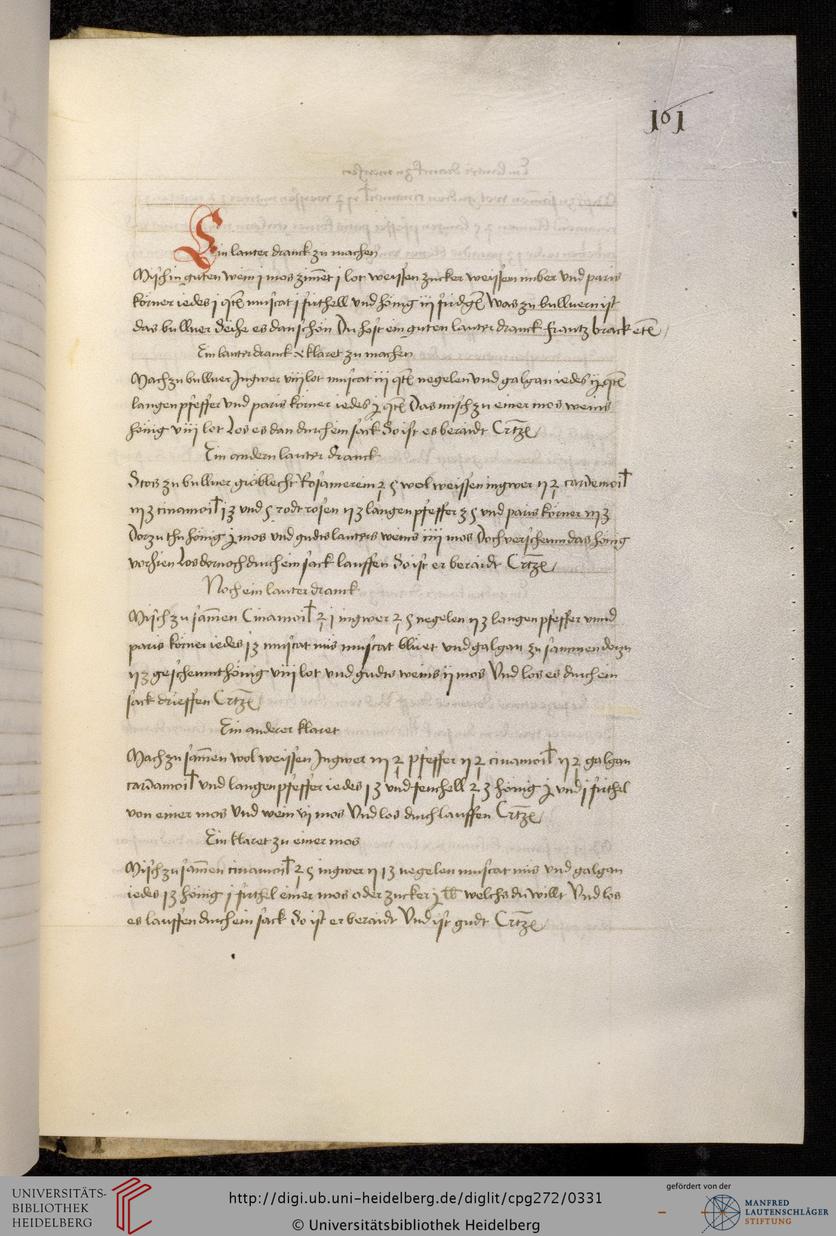 161
Ein lauter dranck zu machen
Misch in guten wein j mos zimet j lot weissen zucker weissen imber vnd paris
körner iedes j qtē muscat j firthell vnd hönig iij firdgē Was zu bullvern ist
das bullver Seihe es dan schön Du host ein guten lautter dranck frantz brack etc
Ein lauter dranck klaret zu machen
Mach zu bullver Ingwer viij lot muscat iij qtē negelen vnd galgan iedes ij qtē
langen pfeffer vnd paris körner iedes j qtē Das misch zu einer mos weins
hönig viij lot Los es dan durch ein sack So ist es beraidt
Ein andern lauter dranck
Stos zu bullver gröblecht weissen ingwer
cinamoil vnd rodt rosen langen pfeffer vnd paris körner
Dorzu thu hönig j mos vnd gudts lauters weins iiij mos Doch verscheum das hönig
vorhien Los dornoch durch ein sack lauffen So ist er beraidt
Noch ein lauter dranck
Misch zu samen Cinamoil ingwer negelen langen pfeffer vnnd
paris körner iedes muscat nüs muscat bluet vnd galgan zu sammen
geschеumt hönig viij lot vnd gudts weins ij mos Vnd los es durch ein
sack drieffen
Ein anderer klaret
Mach zu samen wol weissen Ingwer pfeffer cinamoil galgan
cardamoil vnd langen pfeffer iedes vnd fenchell hönig j vnd j firthel
von einer mos Vnd wein vj mos Vnd los durch lauffen
Ein klaret zu einer mos
Misch zu samen cinamoil ingwer negelen muscat nüs vnd galgan
iedes hönig j firthel einer mos oder zucker welchs du willt Vnd los
es lauffen durch ein sack So ist er beraidt Vnd ist gudt
UNIVERSITÄTS-
BIBLIOTHEK
HEIDELBERG
http://digi.ub.uni-heidelberg.de/diglit/cpg272/0331
© Universitätsbibliothek Heidelberg
gefördert von der
MANFRED
LAUTENSCHLÄGER
STIFTUNG